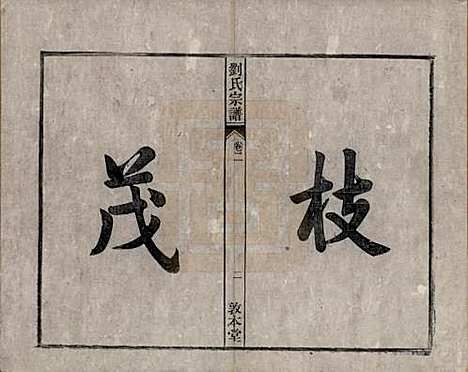 枝
劉氏宗譜
卷二
二
敦本堂
茂